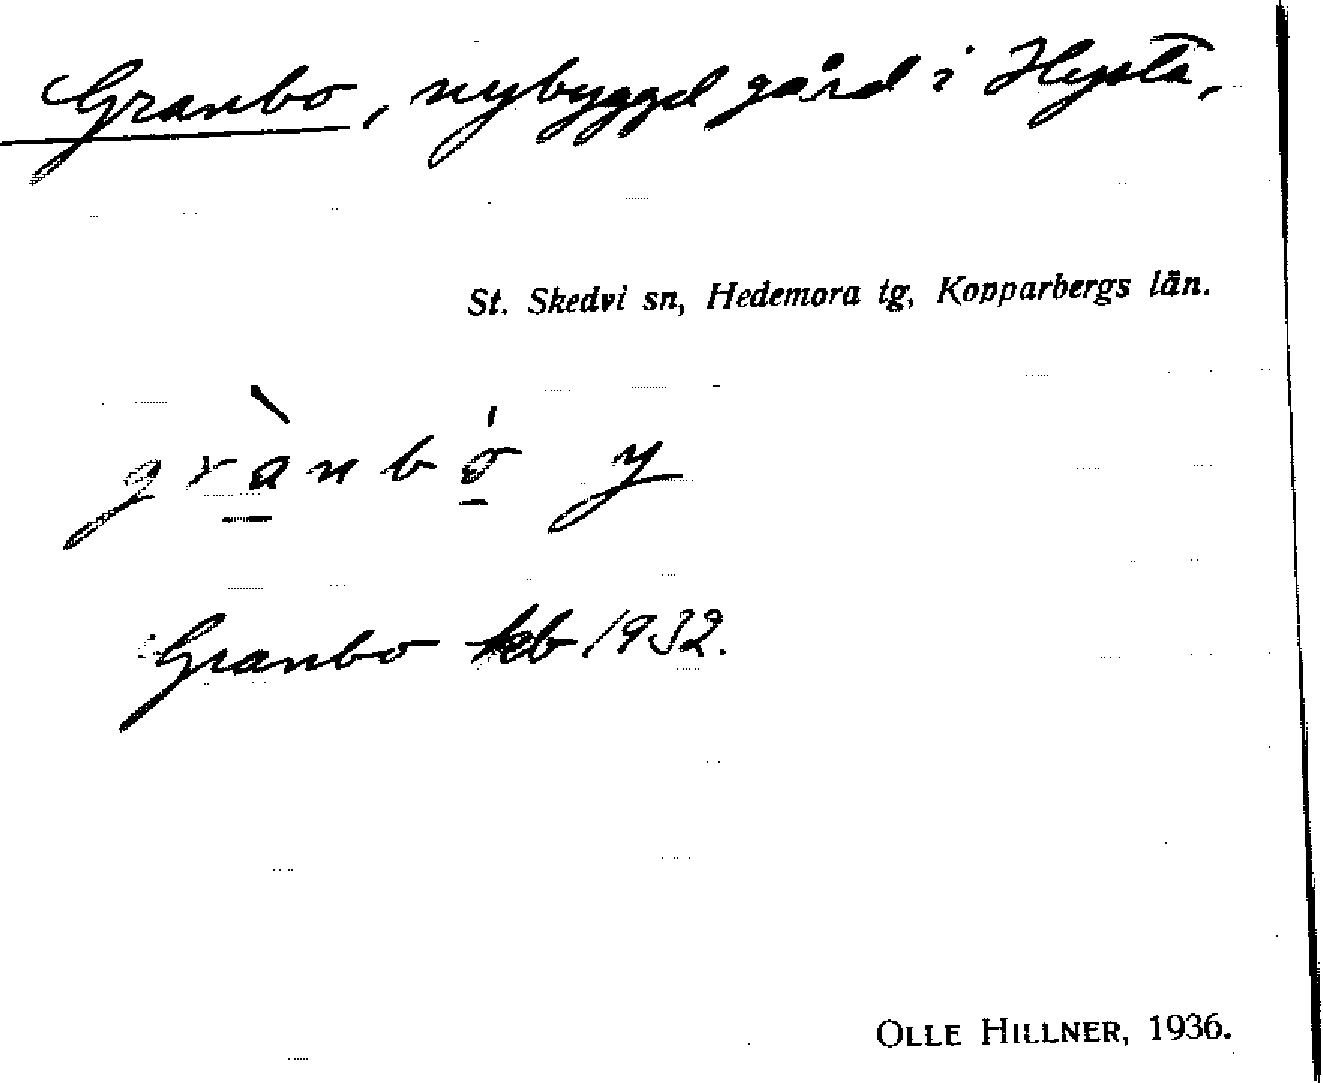 Granbo, nybyggd gård i Hysta,
St. Skedvi sn, Hedemora tg, Kopparbergs län.
grànbó y
Granbo keb 1932.
OLLE HILLNER, 1936.